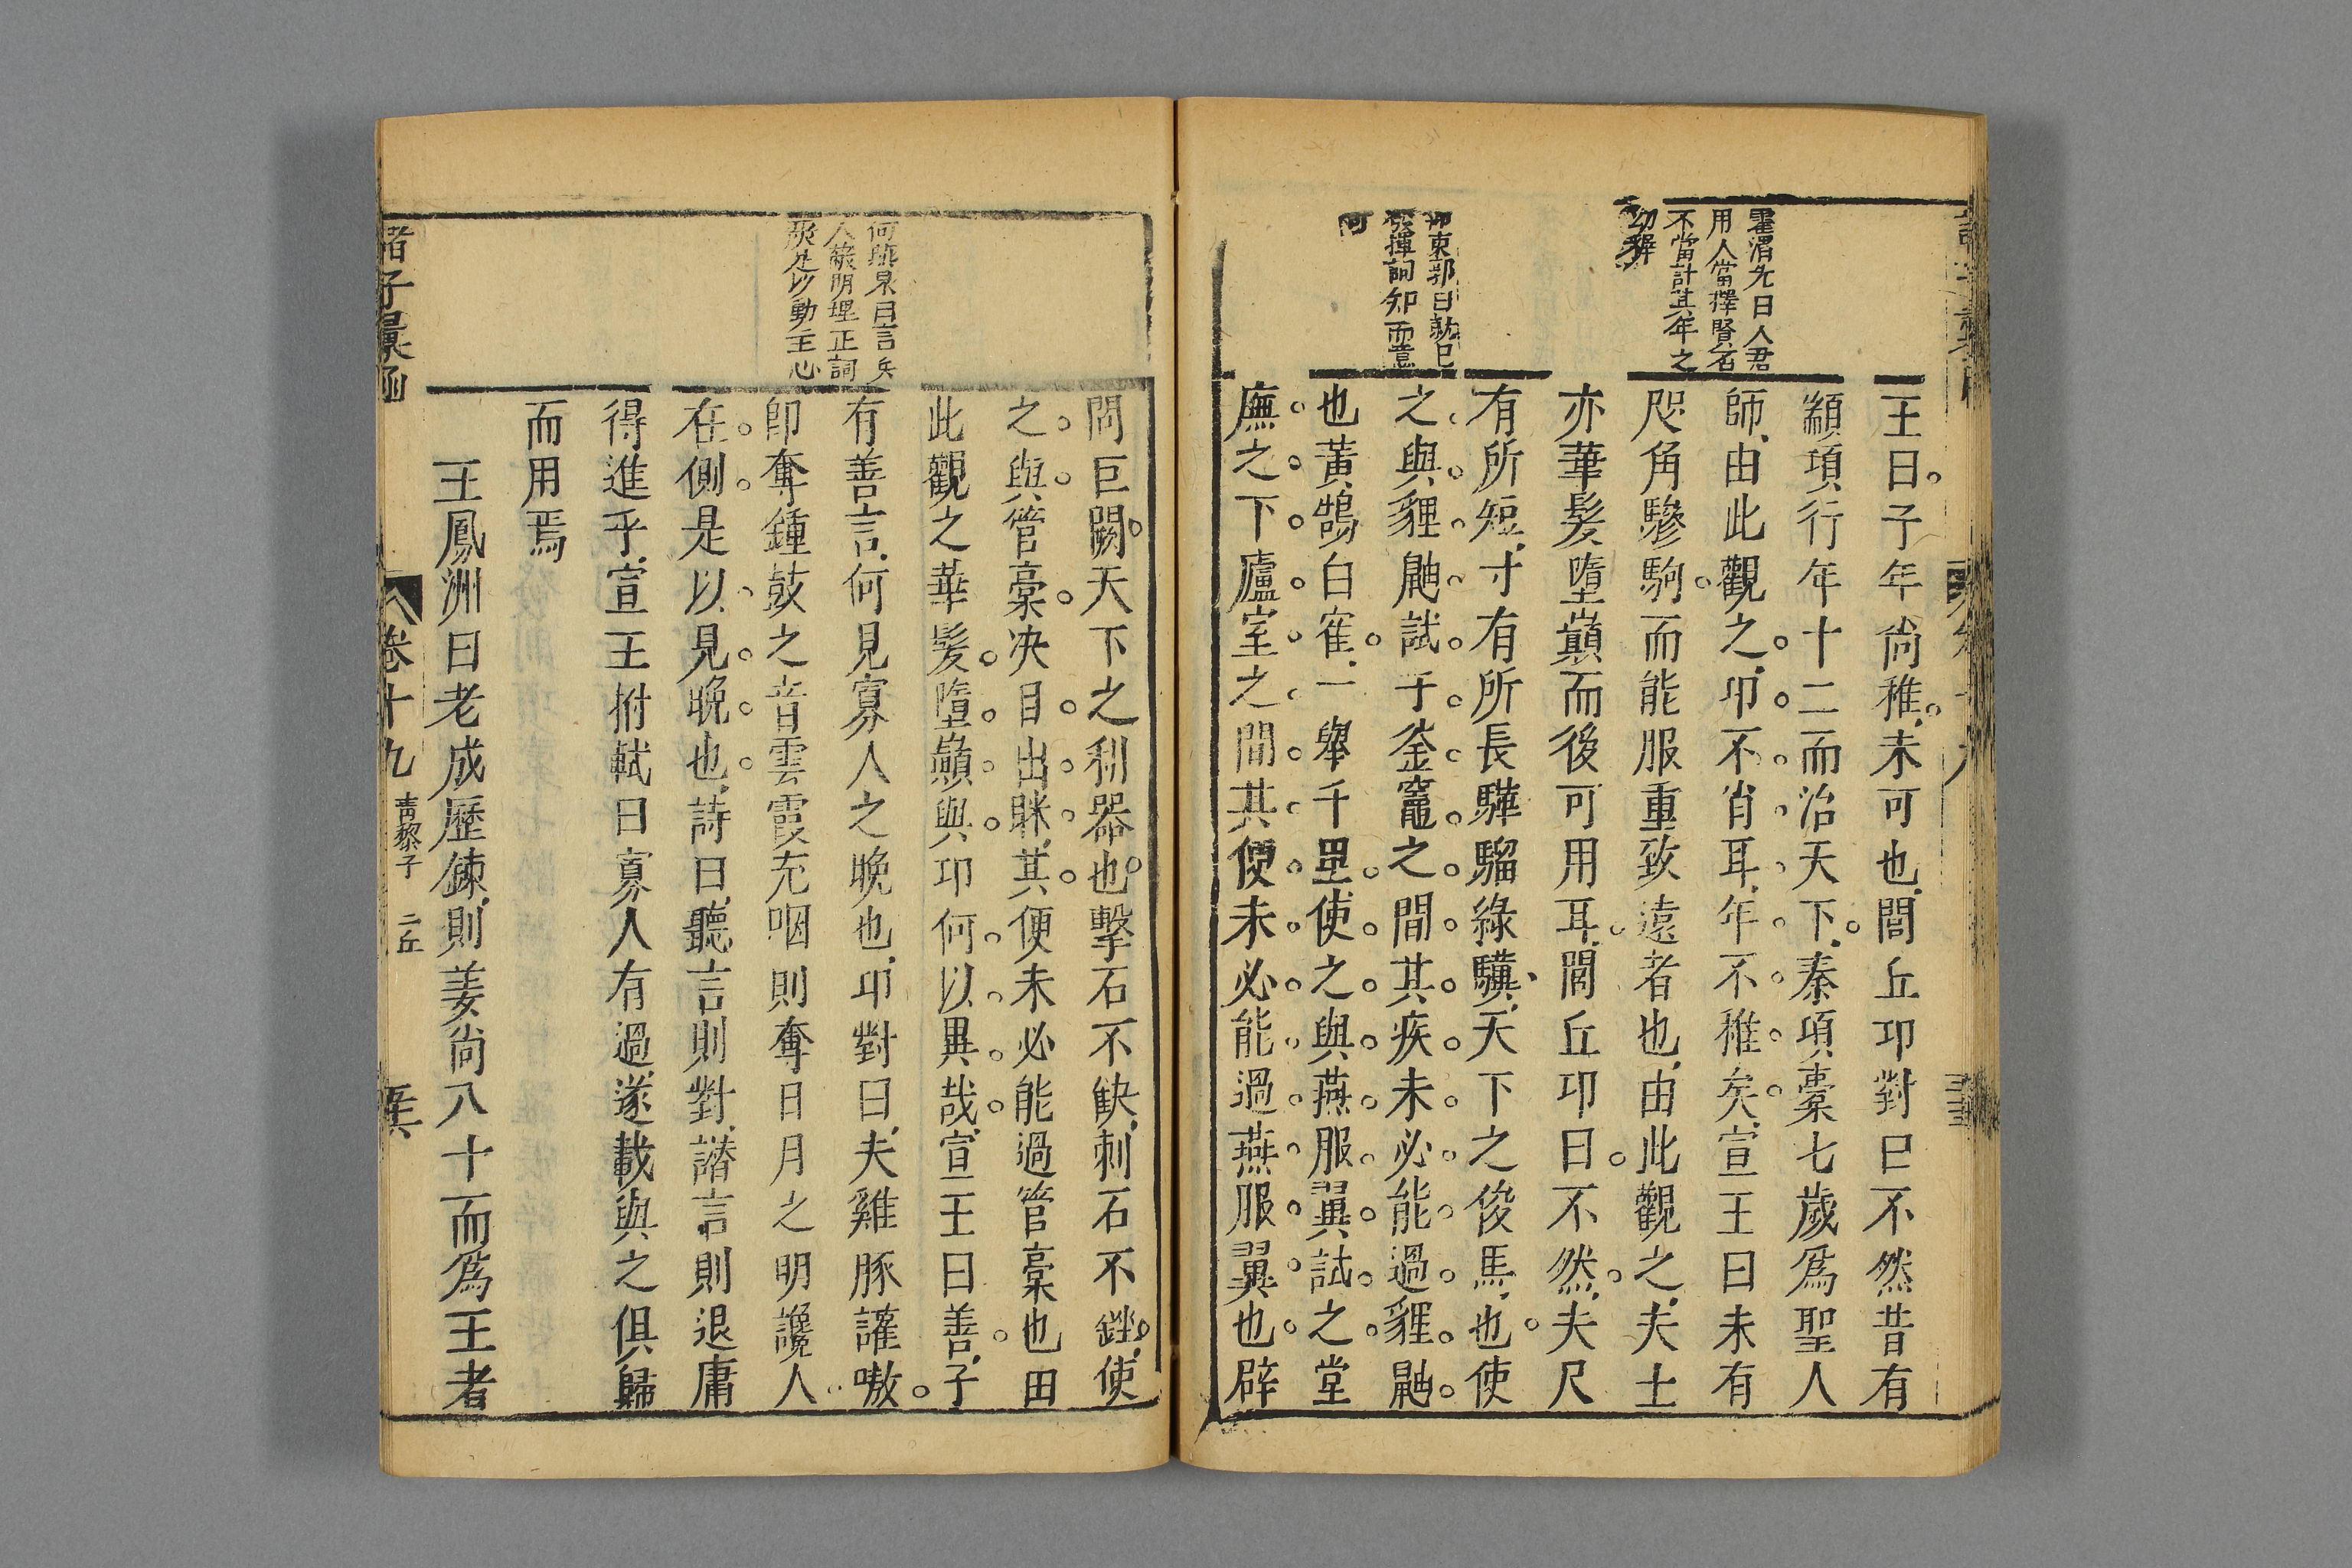 霍渭先曰人君
用人當擇賢否
不當計其年之
幼穉
王曰子年尚稚未可也閭丘卭對曰不然昔有
顓頊行年十二而治天下秦項橐七歲爲聖人
師由此觀之卭不肖耳年不稚矣宣王曰未有
咫角驂駒而能服重致遠者也由此觀之夫士
亦華髮墮巔而後可用耳閭丘卭曰不然夫尺
有所短寸有所長驊騮綠驥天下之俊馬也使
之與貍鼬試于釜竈之間其疾未必能過貍鼬
也黃鵠白寉一舉千里使之與燕服翼試之堂
廡之下廬室之間其便未必能過燕服翼也辟
問巨闕天下之利器也擊石不缺刺石不銼使
之與管槀决目出眯其便未必能過管槀也田
此觀之華髮墮巔與卭何以異哉宣王曰善子
有善言何見寡人之晚也卭對曰夫雞豚讙嗷
卽奪鍾鼓之音雲霞充咽則奪日月之明讒人
在側是以見晚也詩曰聽言則對譖言則退庸
得進乎宣王拊軾曰寡人有過遂載與之俱歸
而用焉
王鳳洲曰老成歷鍊則姜尚八十而爲王者
諸子彙函
卷十九
青黎子
二丘